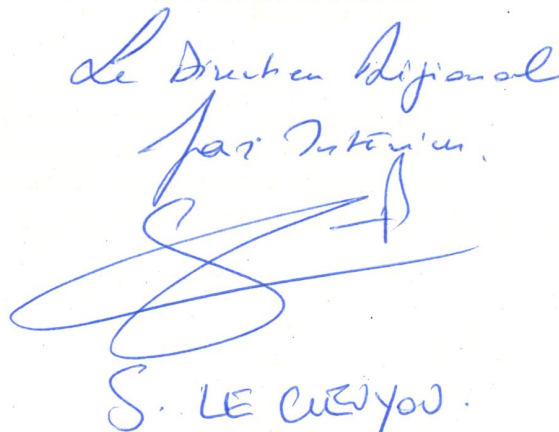 Le Directeur Régional
par Intérim.
S. LE